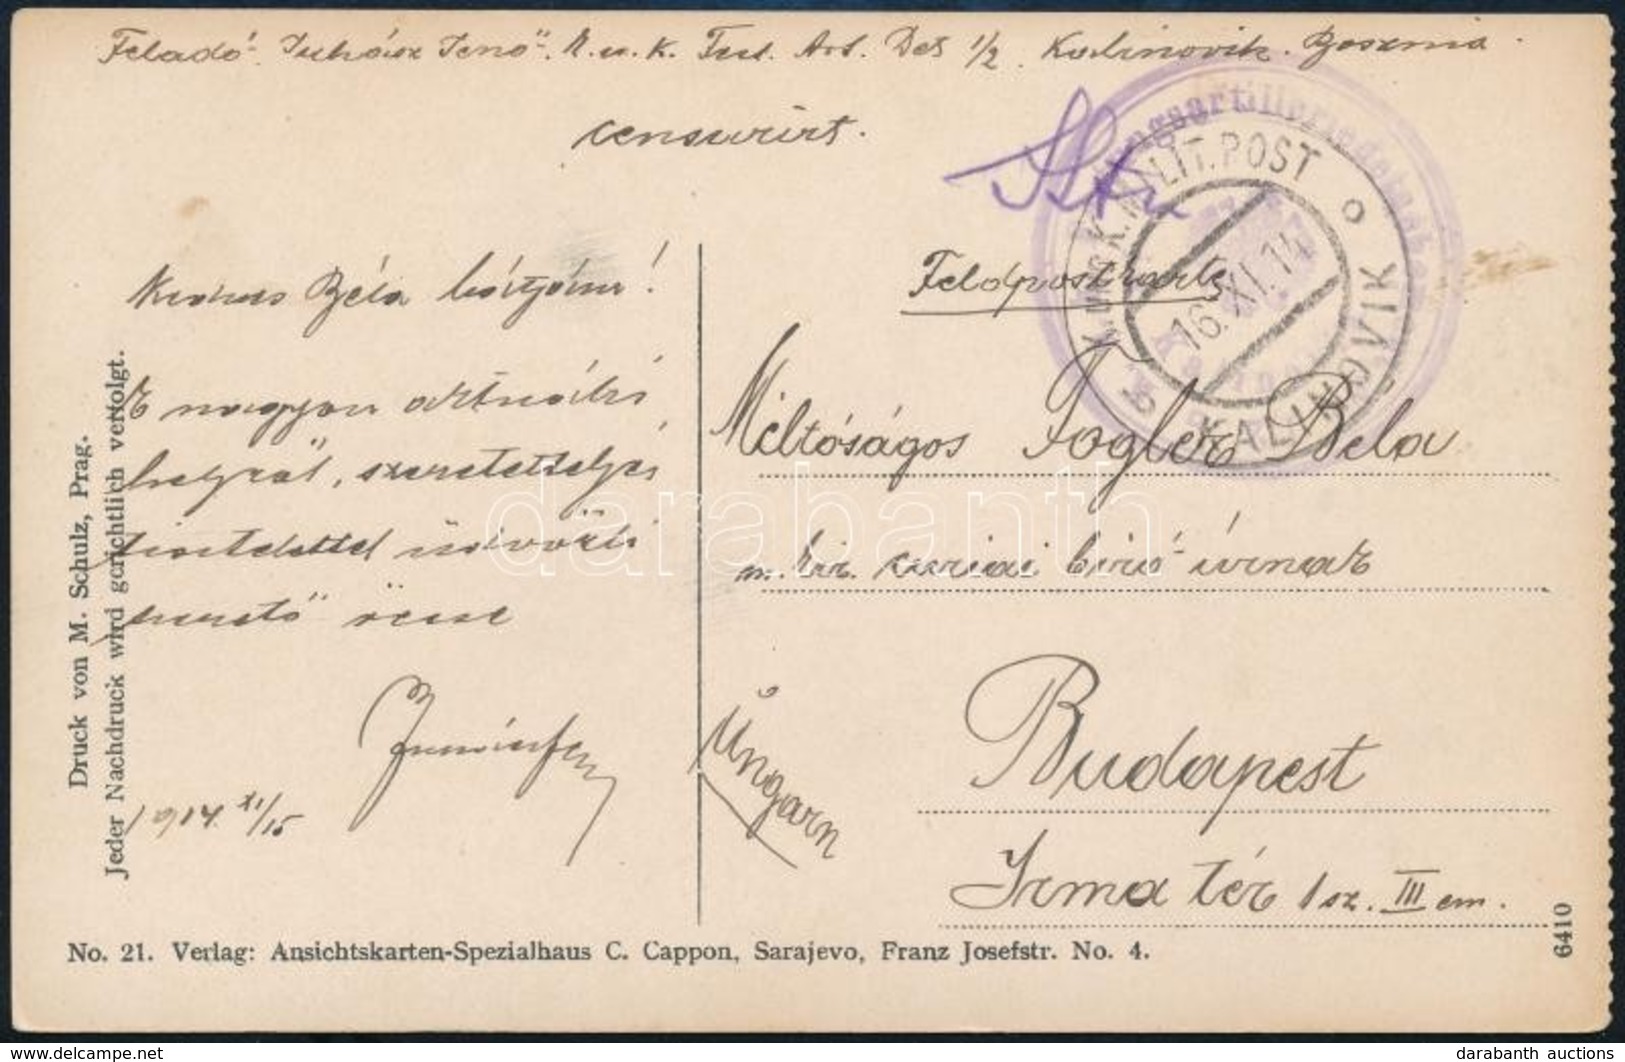 Feladó Juhász Jenő K. u. K. Fest. Art. Det 1/2 Kalinovik. Bosznia.
censurirt.
K. u. K. MILIT. POST
KALINOVIK
16. XI. 14
b
Feldpostkarte
Kedves Béla bátyám!
E nagyon aktuális
helyről, szeretetteljes
tisztelettel üdvözli
öcscse
1914. XI/15
Méltóságos Fogler Béla
m. kir. curiai biró úrnak
Budapest
Ungarn
Irma tér 1 sz. III em.
Druck von M. Schulz, Prag.
Jeder Nachdruck wird gerichtlich verfolgt.
No. 21. Verlag: Ansichtskarten-Spezialhaus C. Cappon, Sarajevo, Franz Josefstr. No. 4.
6410
darabanth
www.delcampe.net
darabanth auctions